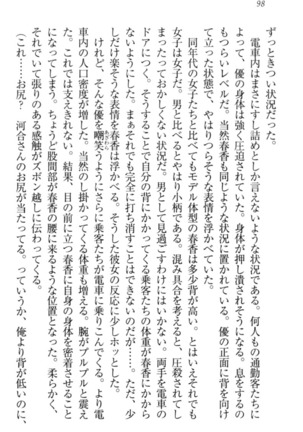 98
ずっときつい状況だった。
　電車内はまさにすし詰めとしか言えないような状況である。何人もの通勤客たちに
よって、優の身体は強く圧迫されていた。身体が押し潰されそうになる。息をするの
もつらいレベルだ。当然春香も同じような状況に置かれていた。優の正面に背を向け
て立った状態で、やはりつらそうな表情を浮かべていた。
　同年代の女子たちと比べてもモデル体型の春香は多少背が高い。とはいえそれでも
女子は女子だ。男と比べるとやはり小柄である。混み具合を考えると、圧殺されてし
まってもおかしくない状況だ。男として見過ごすわけにはいかない。両手を電車の
ドアにつく。そうすることで自分の背にかかってくる乗客たちの体重が春香にかから
ないようにした。まぁそれでも完全に打ち消すことはできないのだが……。ただ、少
しだけ楽そうな表情を春香は浮かべる。そうした彼女の反応に少しホッとした。
　けれど、そんな優を嘲笑うようにさらに乗客たちが電車に乗りこんでくる。より電
車内の人口密度が増した。当然のし掛かってくる体重も増える。腕がプルプルと震え
た。これでは支えきれない。結果、目の前に立つ春香に自身の身体を密着させること
になってしまう。ちょうど股間部が春香の尻に当たるような位置となった。柔らかく、
それでいて張りのある感触がズボン越しに伝わってくる。
（これ……お尻？　河合さんのお尻が当たってる。っていうか、俺より背が低いのに、